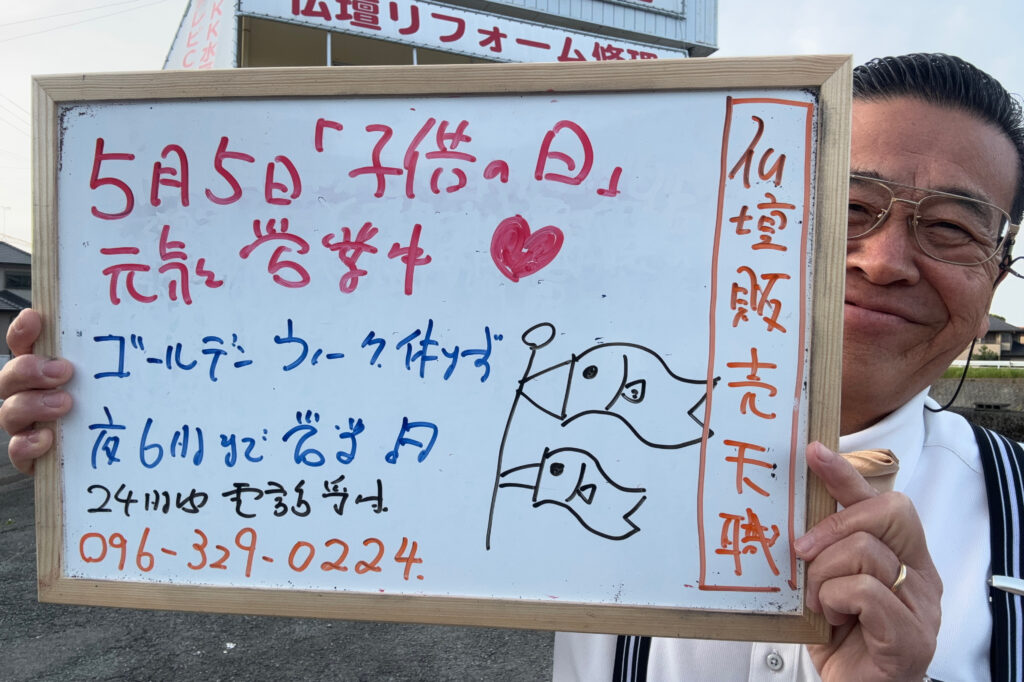 仏壇リフォーム修理
5月5日「子供の日」
元気に営業中
ゴールデンウィーク休まず
夜6時まで営業中
24時間電話受付
096-329-0224.
仏壇販売天職